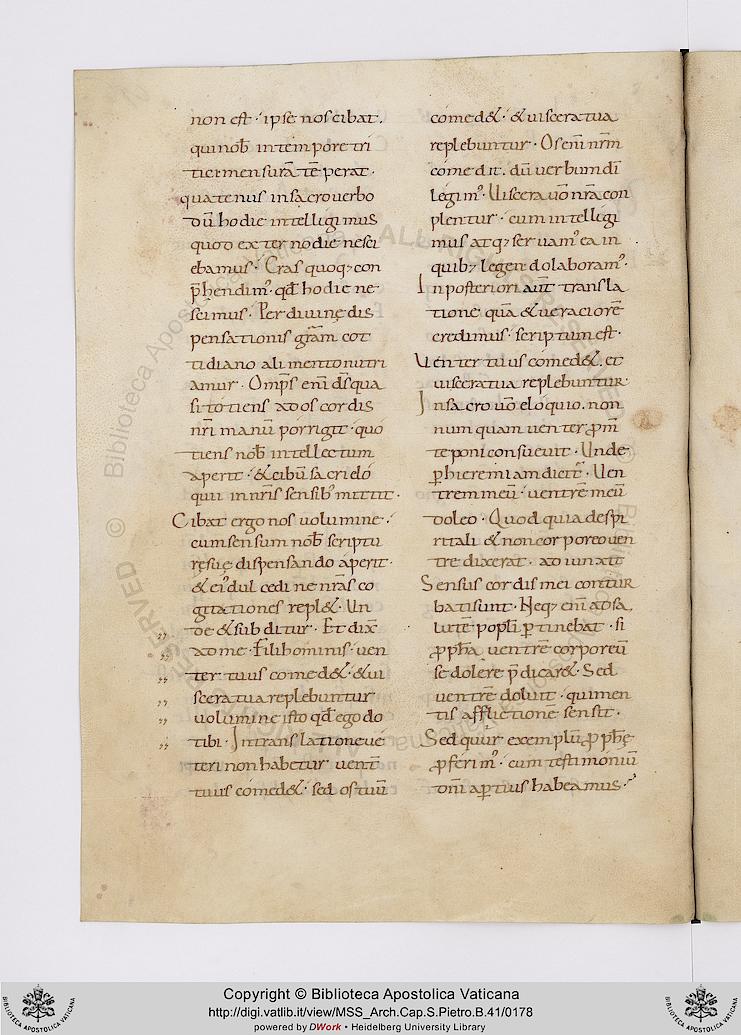 non est · ipse nos cibat.
qui nob̅ in tempore tri
tici mensurā tēperat ·
quatenus in sacro verbo
dū hodie intelligimus
quod externo die nesci
ebamus · Cras quoq; con
p̅hendim᾽ · qđ hodie ne
scimus · Per divinę dis
pensationis gr̄am cot
tidiano alimento nutri
amur · Omp̅s eni d̅s qua
si totiens ad os cordis
nr̄i manū porrigit · quo
tiens nob̅ intellectum
aperit · & cibū sacri elo
quii in nr̄is sensib᾽ mittit ·
Cibat ergo nos volumine ·
cum sensum nob̅ scriptu
rę suę dispensando aperit ·
& ei᾽ dulcedine nr̄as co
gitationes repl& · Un
de & subditur · Et dix̄
ad me · Fili hominis · ven
ter tuus comed& · & vi
scera tua replebuntur
volumine isto qđ ego do
tibi · In translatione ve
teri non habetur vent̄
tuus comed& · sed os tuū
comed& · & viscera tua
replebuntur · Os eni nr̄m
comedit · dū verbum dī
legim᾽ · Viscera v̄o nr̄a con
plentur · cum intelligi
mus atq; servam᾽ ea in
quib; legendo laboram᾽ ·
In posteriori aut̄ transla
tione quā & veraciorē
credimus · scriptum est ·
Venter tuus comed& · et
viscera tua replebuntur
In sacro v̄o eloquio · non
numquam venter p̱ m̄
te poni consuevit · Unde
p̱ hieremiam dicit̄ · Ven
trem meū · ventrē meū
doleo · Quod quia de spi
ritali & non corporeo ven
tre dixerat · adiunxit
Sensus cordis mei contur
bati sunt · Neq; eni ad sa
lutē popli p̱tinebat · si
p̱ph̅a ventrē corporeū
se dolere p̅dicar& · Sed
ventrē doluit · qui men
tis afflictionē sensit ·
Sed quur exemplū p̱ph̅ę
p̱ferim᾽ · cum testimoniū
dn̄i apertius habeamus ·
Copyright © Biblioteca Apostolica Vaticana
http://digi.vatlib.it/view/MSS_Arch.Cap.S.Pietro.B.41/0178
powered by DWork • Heidelberg University Library